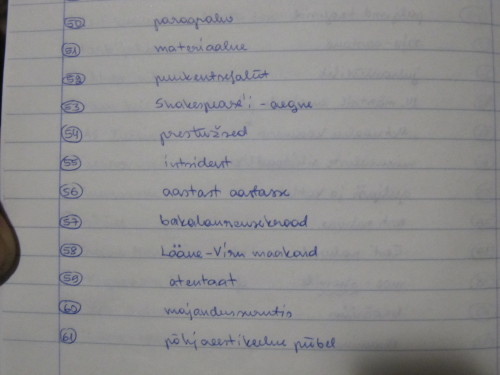 50 paragrahv
51 materiaalne
52 puukentsefaliit
53 Shakespeare'i-aegne
54 prestiižsed
55 intsident
56 aastast aastasse
57 bakalaureusekraad
58 Lääne-Viru maakond
59 atentaat
60
61 põhjaeestikeelne piibel